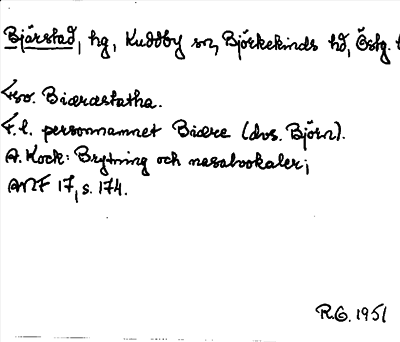 Bjärstad, hg, Kuddby sn, Björkekinds hd, Östg. l
Fsv. Biærastatha.
F.l. personnamnet Biære (dvs. Björn).
A. Kock: Brytning och nasalvokaler;
ANF 17, s. 174.
R.G. 1951